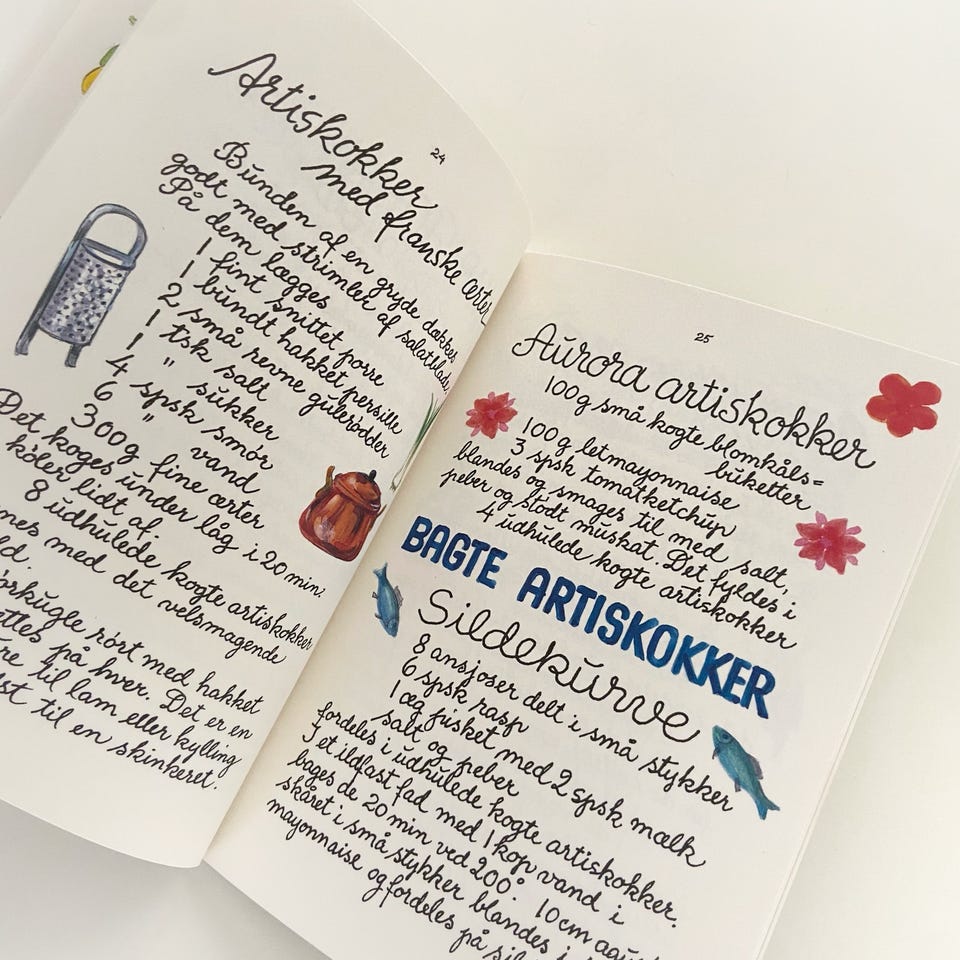 24
Artiskokker
med franske ærter
Bunden af en gryde dækkes
godt med strimler af salatblade
På dem lægges
1 fint snittet porre
1 bundt hakket persille
2 små revne gulerødder
1 tsk salt
1 " sukker
4 spsk smør
6 " vand
300g fine ærter
Det koges under låg i 20 min.
køler lidt af.
8 udhulede kogte artiskokker
med det velsmagende
rørt med hakket
på hver. Det er en
til lam eller kylling
til en skinkeret.
25
Aurora artiskokker
100g små kogte blomkåls=
buketter
100g letmayonnaise
3 spsk tomatketchup
blandes og smages til med salt,
peber og stødt muskat. Det fyldes i
4 udhulede kogte artiskokker
BAGTE ARTISKOKKER
Sildekurve
8 ansjoser delt i små stykker
6 spsk rasp
1 æg pisket med 2 spsk mælk
salt og peber
fordeles i udhulede kogte artiskokker.
I et ildfast fad med 1 kop vand i
bages de 20 min ved 200°. 10 cm
skåret i små stykker blandes i
mayonnaise og fordeles
på